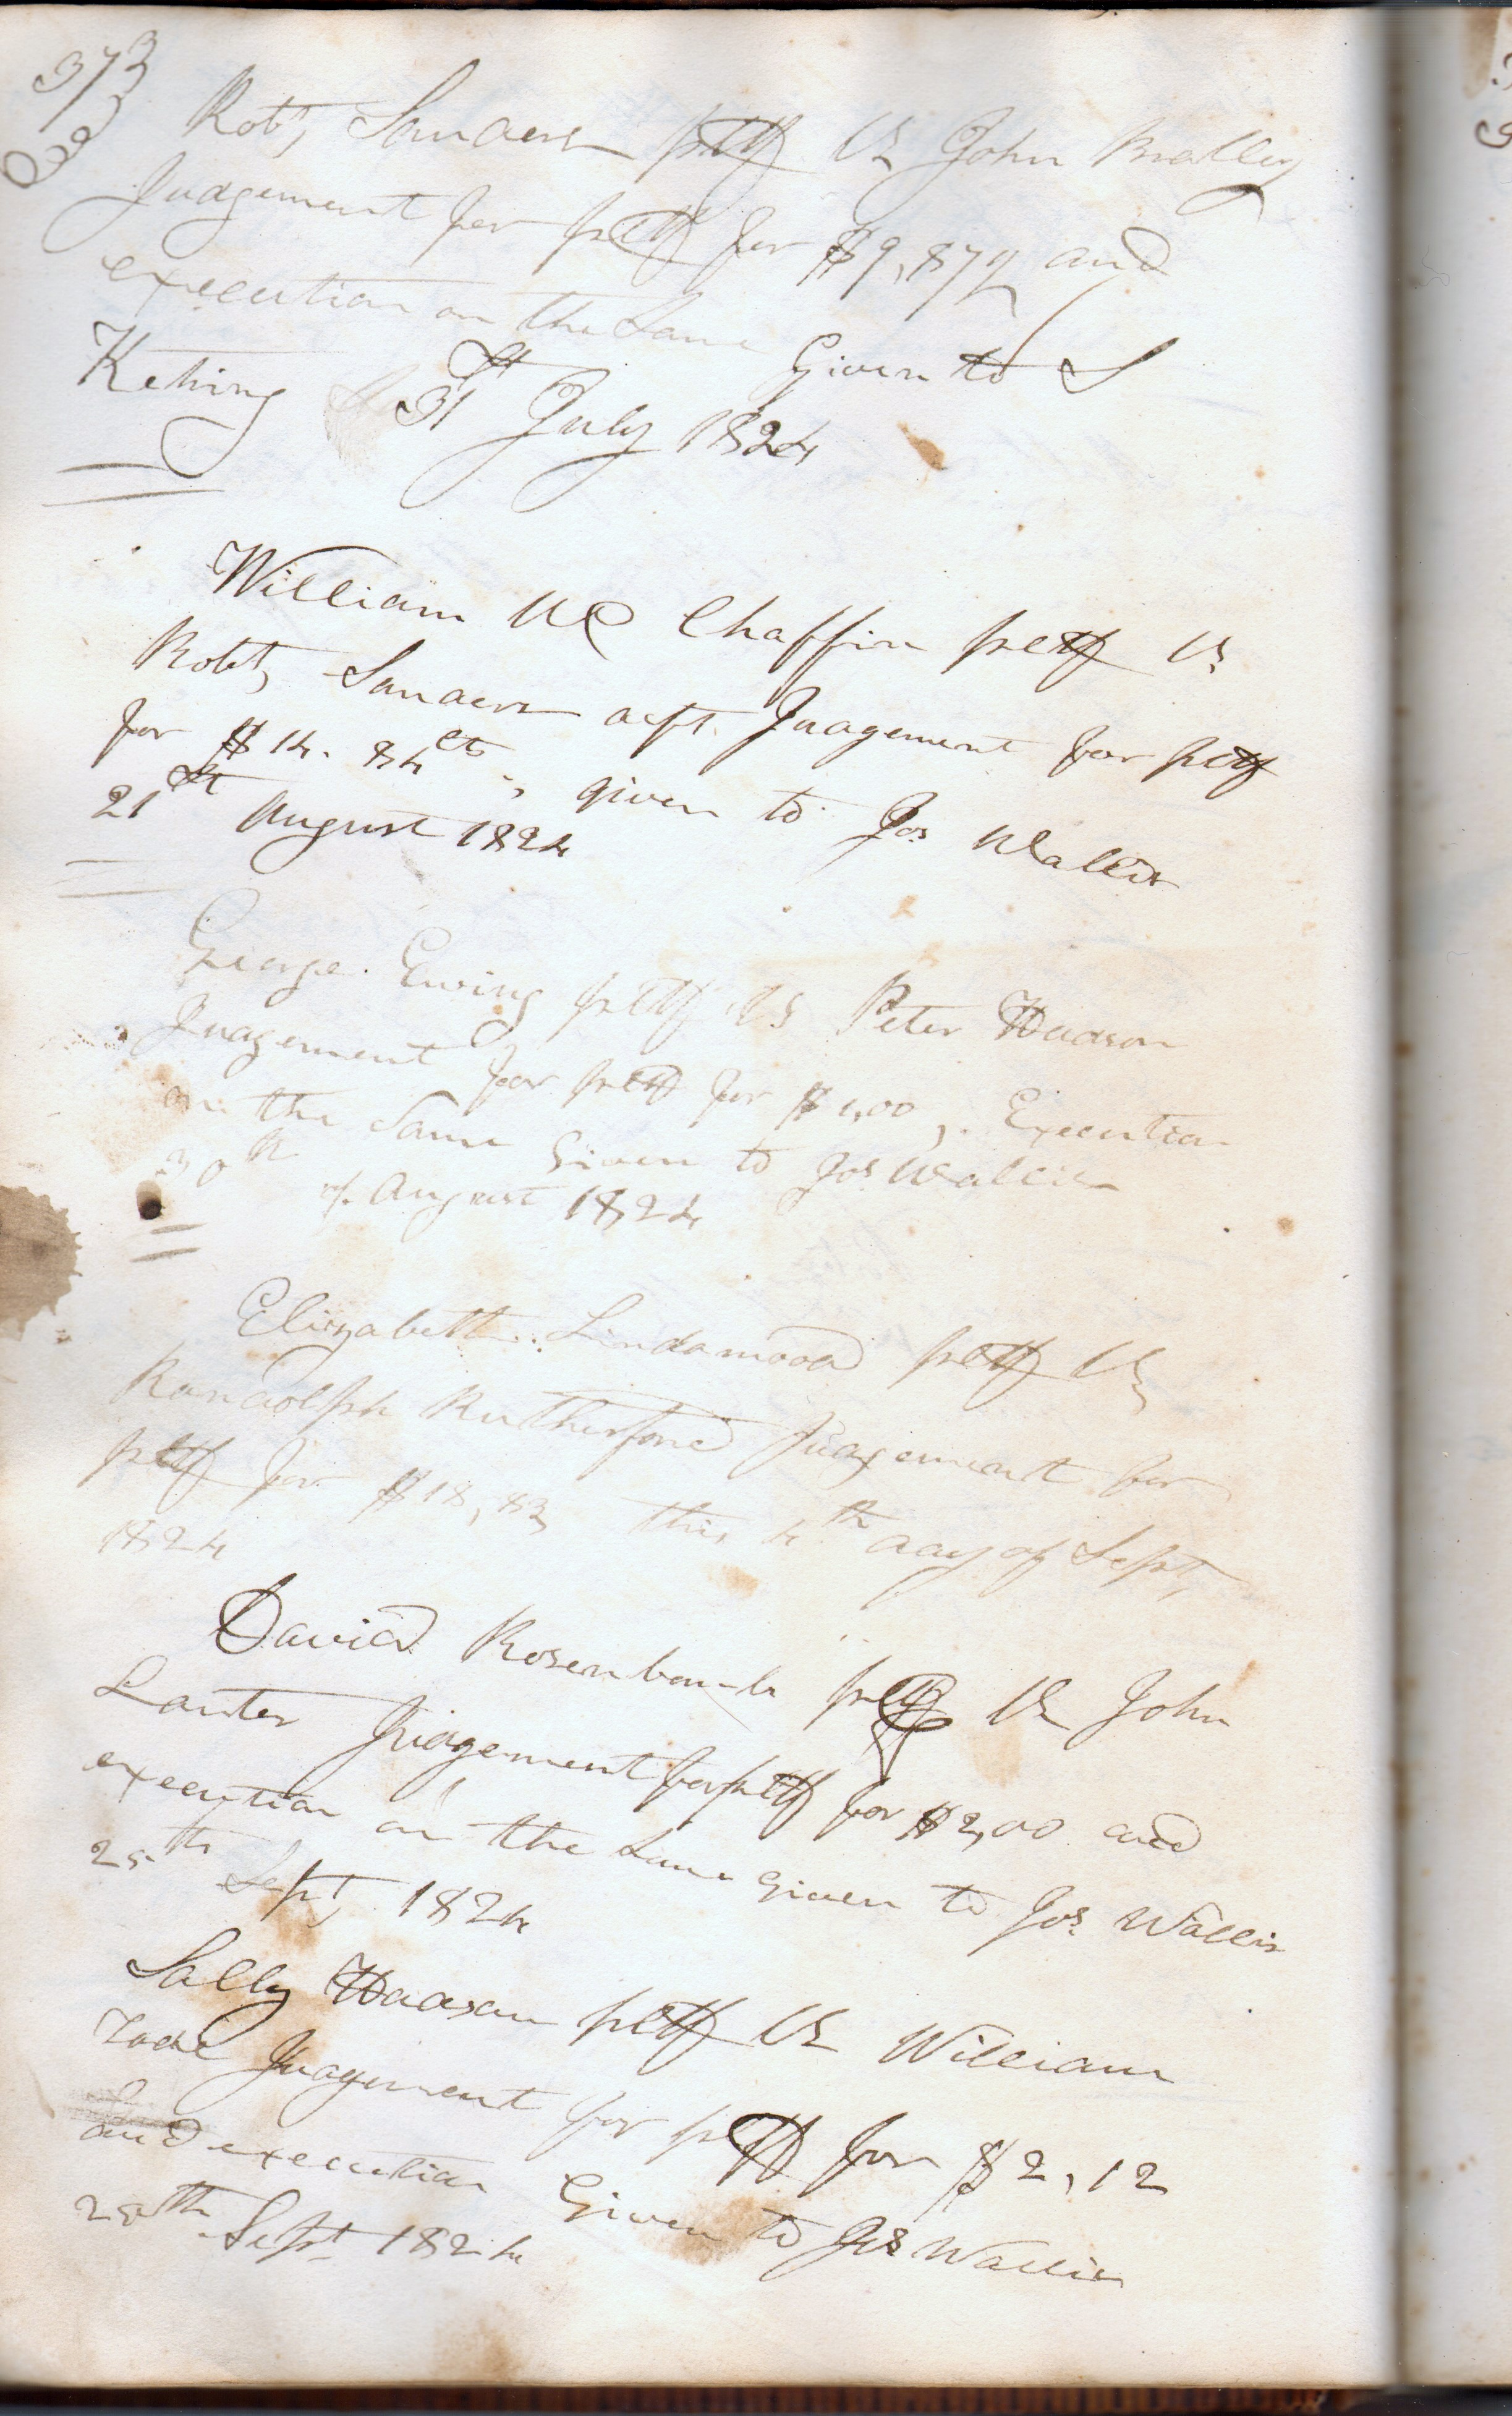 373
Robt, Sanders pltff Vs John Bralley
Judgement for pltff for $9,87½ and
execution on the Same Given to S
Kehing 31st July 1824
William W Chaffin pltff Vs
Robt, Sanders deft. Judgement for pltff
for $14.84cts, given to Jos Wallis
21st August 1824
George Ewing pltff Vs Peter Hudson
Judgement for pltff for $1,00, Execution
on the Same Given to Jos Wallis
30th of August 1824
Elizabeth Lindamood pltff Vs
Randolph Rutherford Judgement for
pltff for $18,83 this 4th day of Sept,
1824
David Rosenbaub pltff Vs John
Lauter Judgement for pltff for $2,00 and
execution on the Same given to Jos Wallis
25th Sept, 1824
Sally Hudson pltff Vs William
Judgement for pltff for $2,12
and execution Given to Jos Wallis
25th Sept 1824